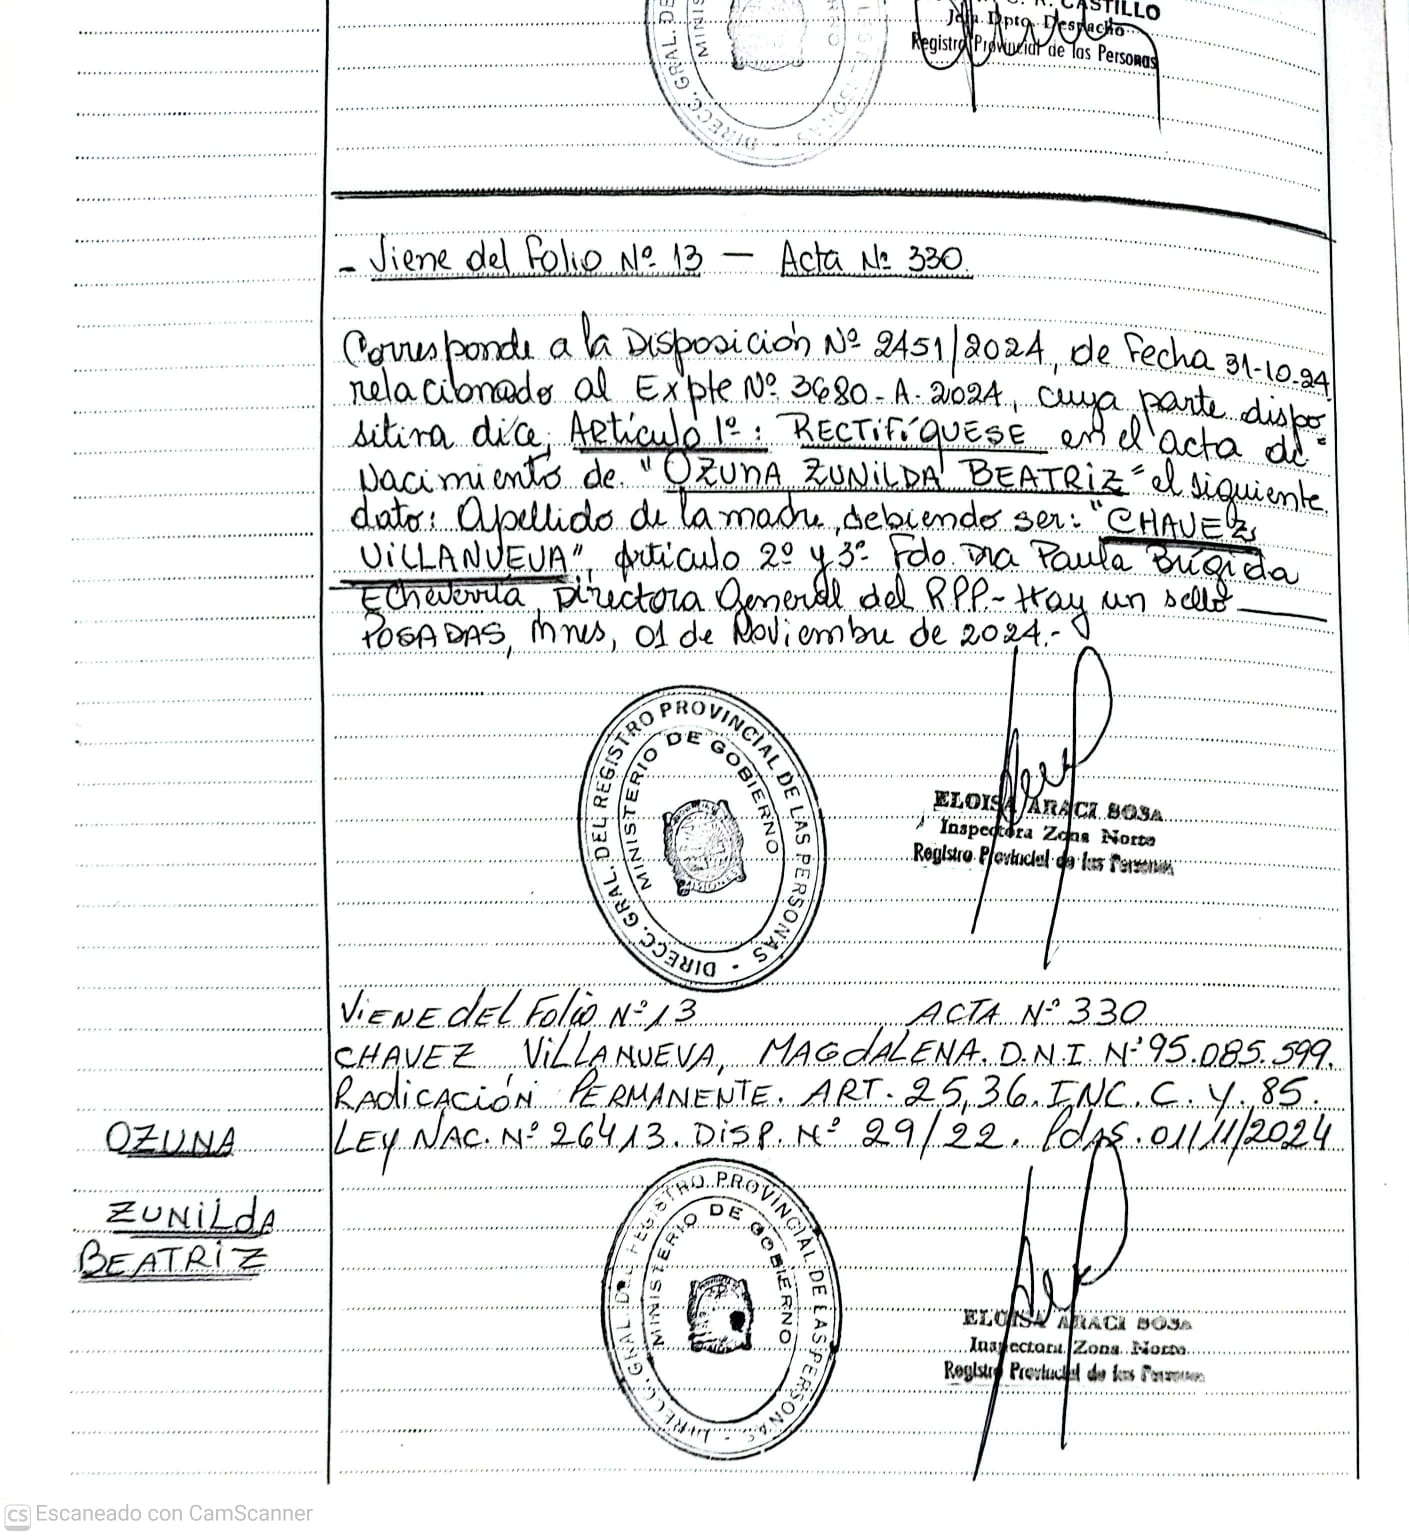 CASTILLO
Jefa Dpto. Despacho
Registro Provincial de las Personas
DIRECC. GRAL. DE
- Viene del Folio Nº 13 — Acta Nº 330.
Corresponde a la Disposición Nº 2451/2024, de Fecha 31-10-24
relacionado al Expte Nº 3680-A-2024, cuya parte dispo
sitiva dice, Artículo 1º: RECTIFÍQUESE en el acta de
Nacimiento de "OZUNA ZUNILDA BEATRIZ" el siguiente
dato: Apellido de la madre, debiendo ser: "CHAVEZ
VILLANUEVA", Artículo 2º y 3º Fdo. Dra Paula Brígida
Echeverria, Directora General del RPP.- Hay un sello
POSADAS, Mnes, 01 de Noviembre de 2024.-
DIRECC. GRAL. DEL REGISTRO PROVINCIAL DE LAS PERSONAS
MINISTERIO DE GOBIERNO
MISIONES
ELOISA ARACI SOSA
Inspectora Zona Norte
Registro Provincial de las Personas
VIENE del Folio Nº 13 ACTA Nº 330
CHAVEZ VILLANUEVA, MAGDALENA. D.N.I. Nº 95.085.599.
RADICACIÓN PERMANENTE. ART. 25, 36. INC. C. Y. 85.
LEY NAC. Nº 26413. DISP. Nº 29/22. Pdas. 01/11/2024
OZUNA
ZUNILDA
BEATRIZ
DIRECC. GRAL. DEL REGISTRO PROVINCIAL DE LAS PERSONAS
MINISTERIO DE GOBIERNO
ELOISA ARACI SOSA
Inspectora Zona Norte
Registro Provincial de las Personas
CS Escaneado con CamScanner